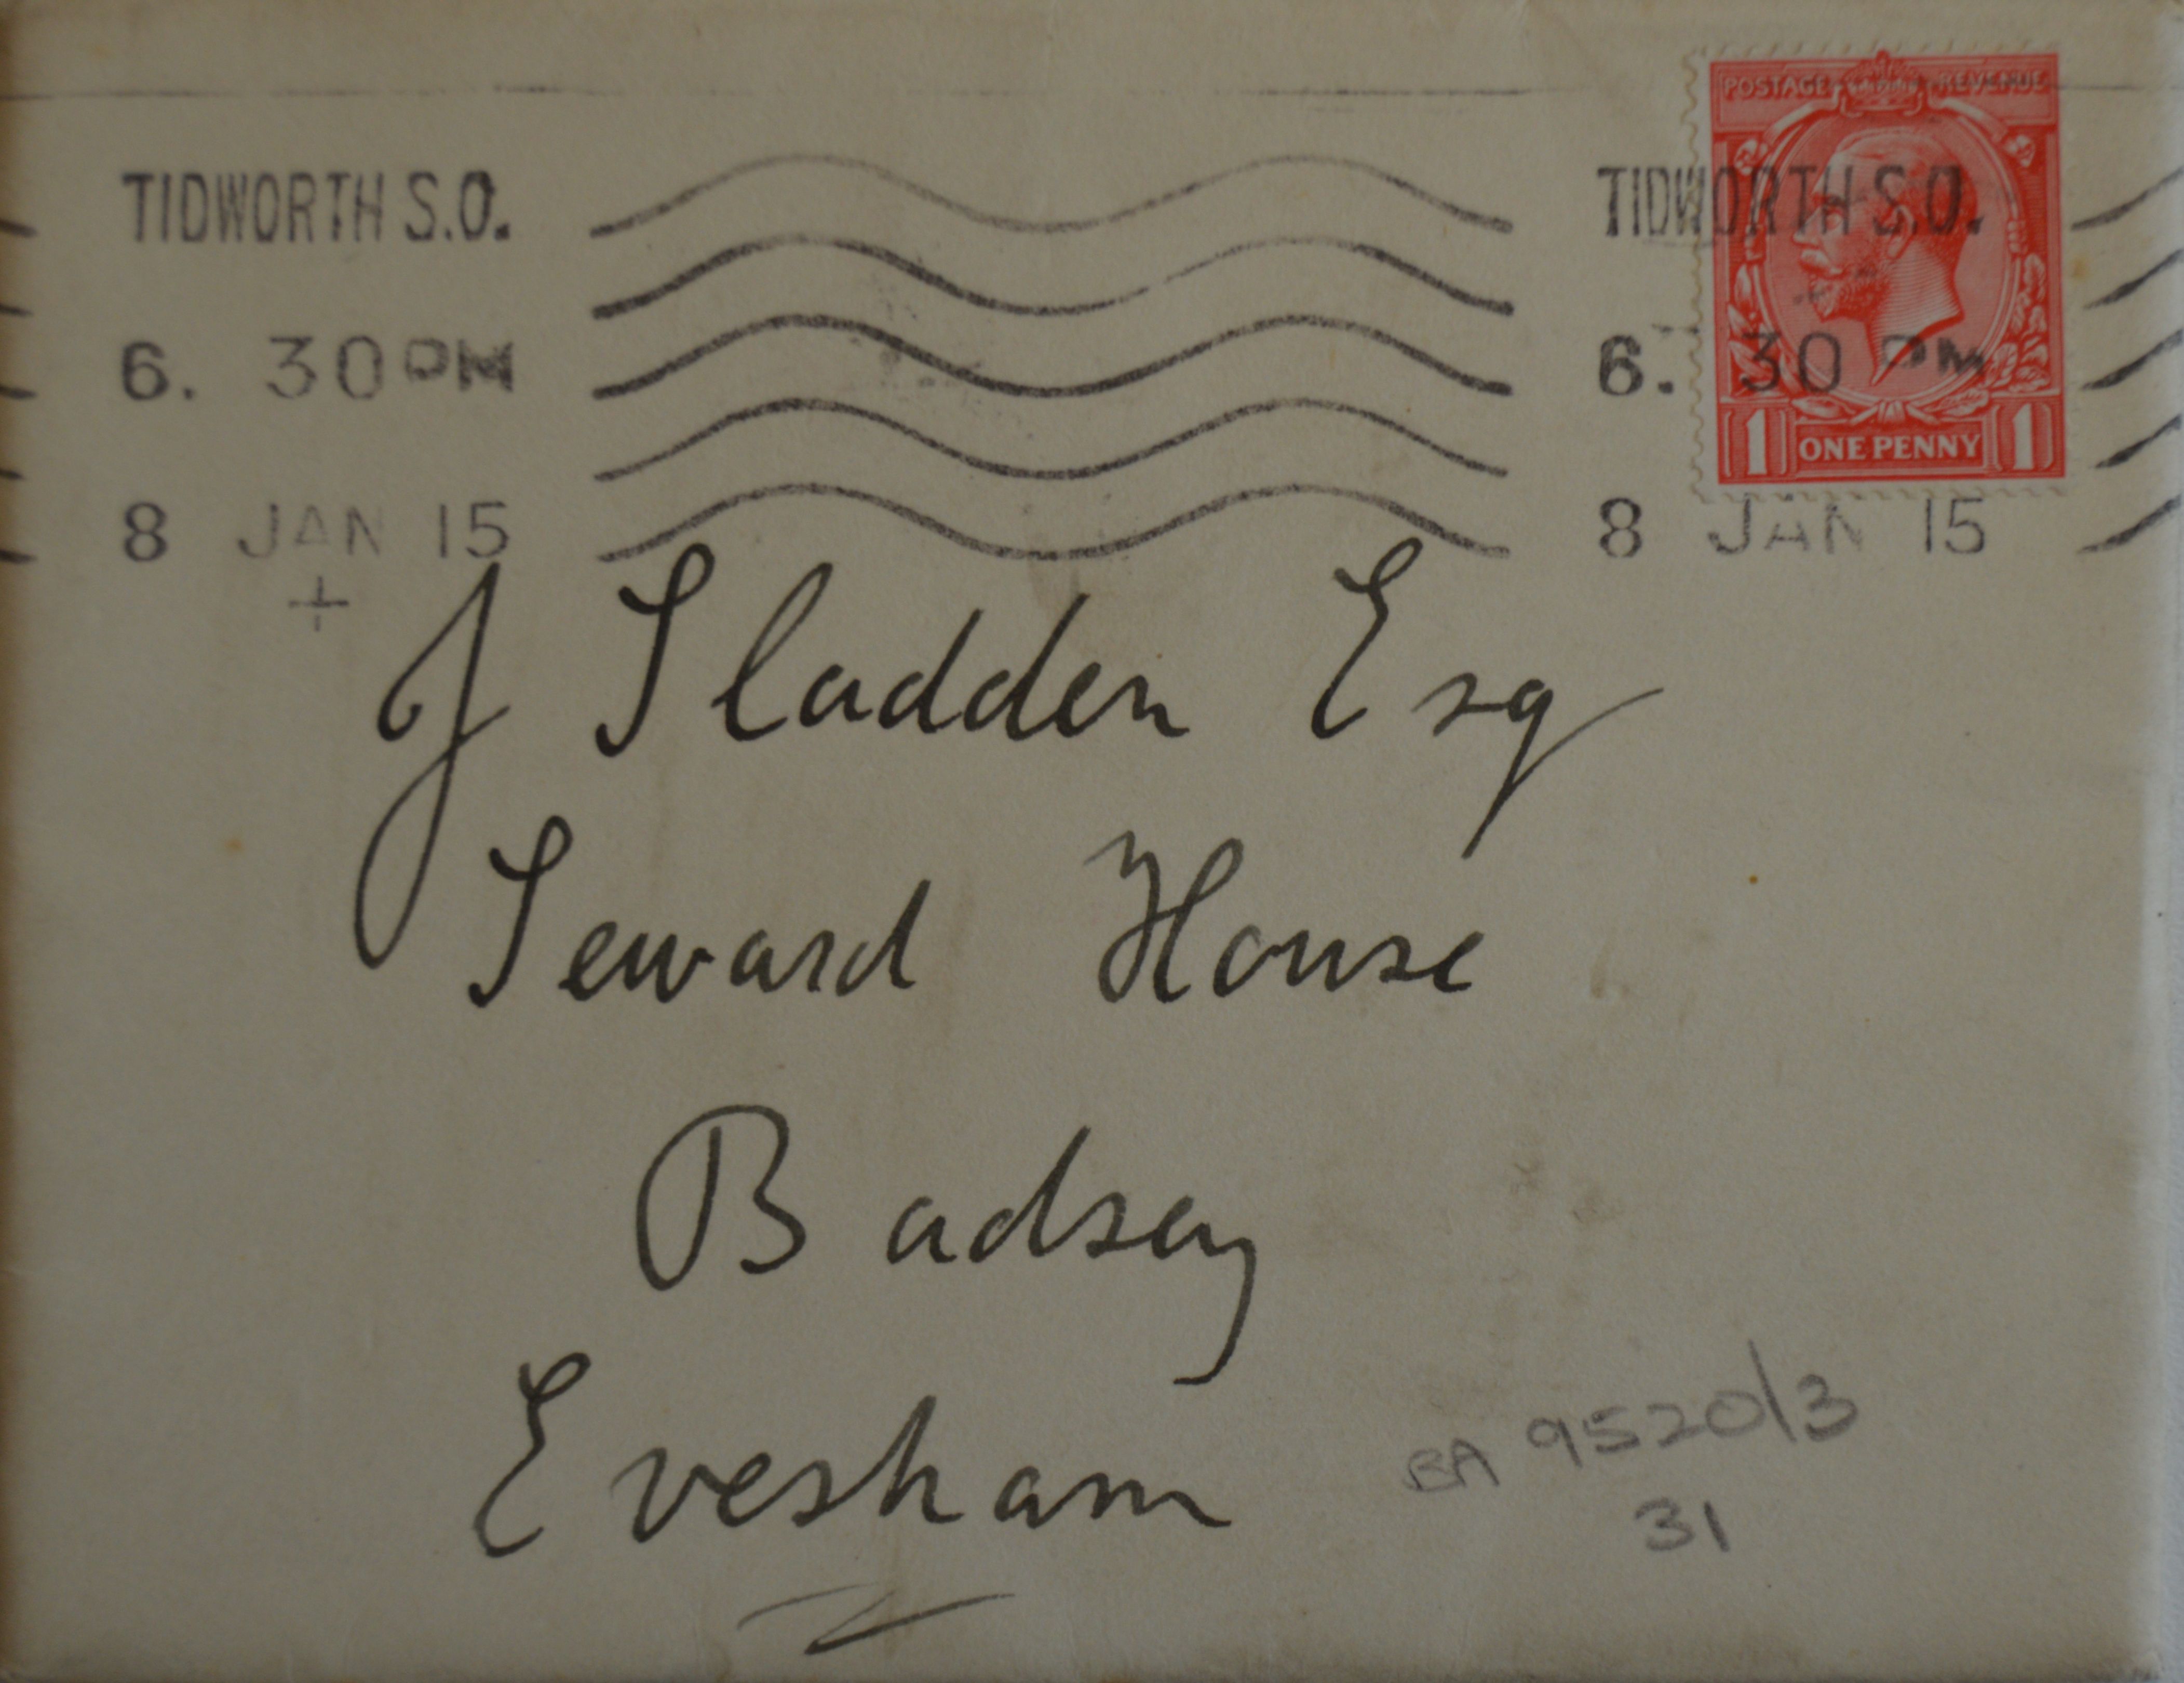 POSTAGE REVENUE
TIDWORTH S.O. TIDWORTH S.O.
6. 30 PM 6. 30 PM
1 ONE PENNY 1
8 JAN 15 8 JAN 15
J Sladden Esq
Seward House
Badsey
Evesham
BA 9520/3
31